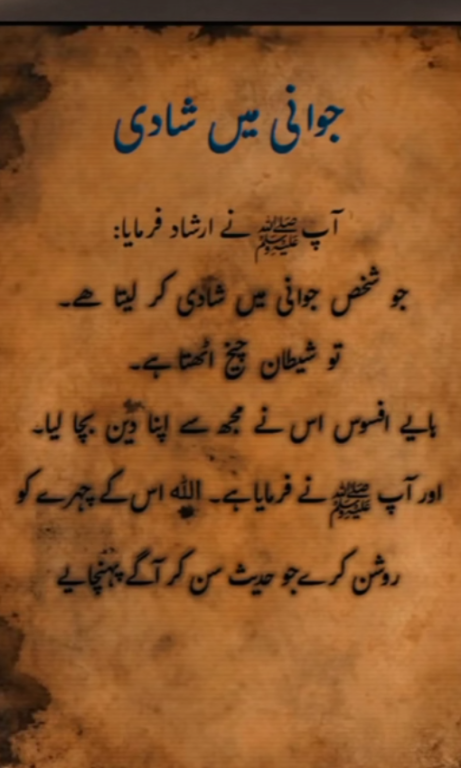 جوانی میں شادی
آپ ﷺ نے ارشاد فرمایا:
جو شخص جوانی میں شادی کر لیتا ھے۔
تو شیطان چیخ اٹھتا ہے۔
ہایے افسوس اس نے مجھ سے اپنا دین بچا لیا۔
اور آپ ﷺ نے فرمایا ہے۔ اللہ اس کے چہرے کو
روشن کرے جو حدیث سن کر آگے پہنچایے